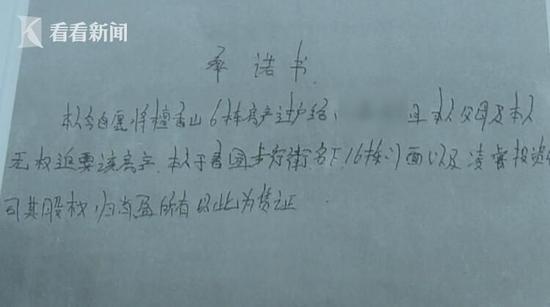 看看新闻
承诺书
本人自愿将檀香山6栋房产过户给 且本人父母及本人
无权追要该房产.本人于 国步行街名下16栋门面以及凌 投资
司其股权归 所有 以此为凭证.